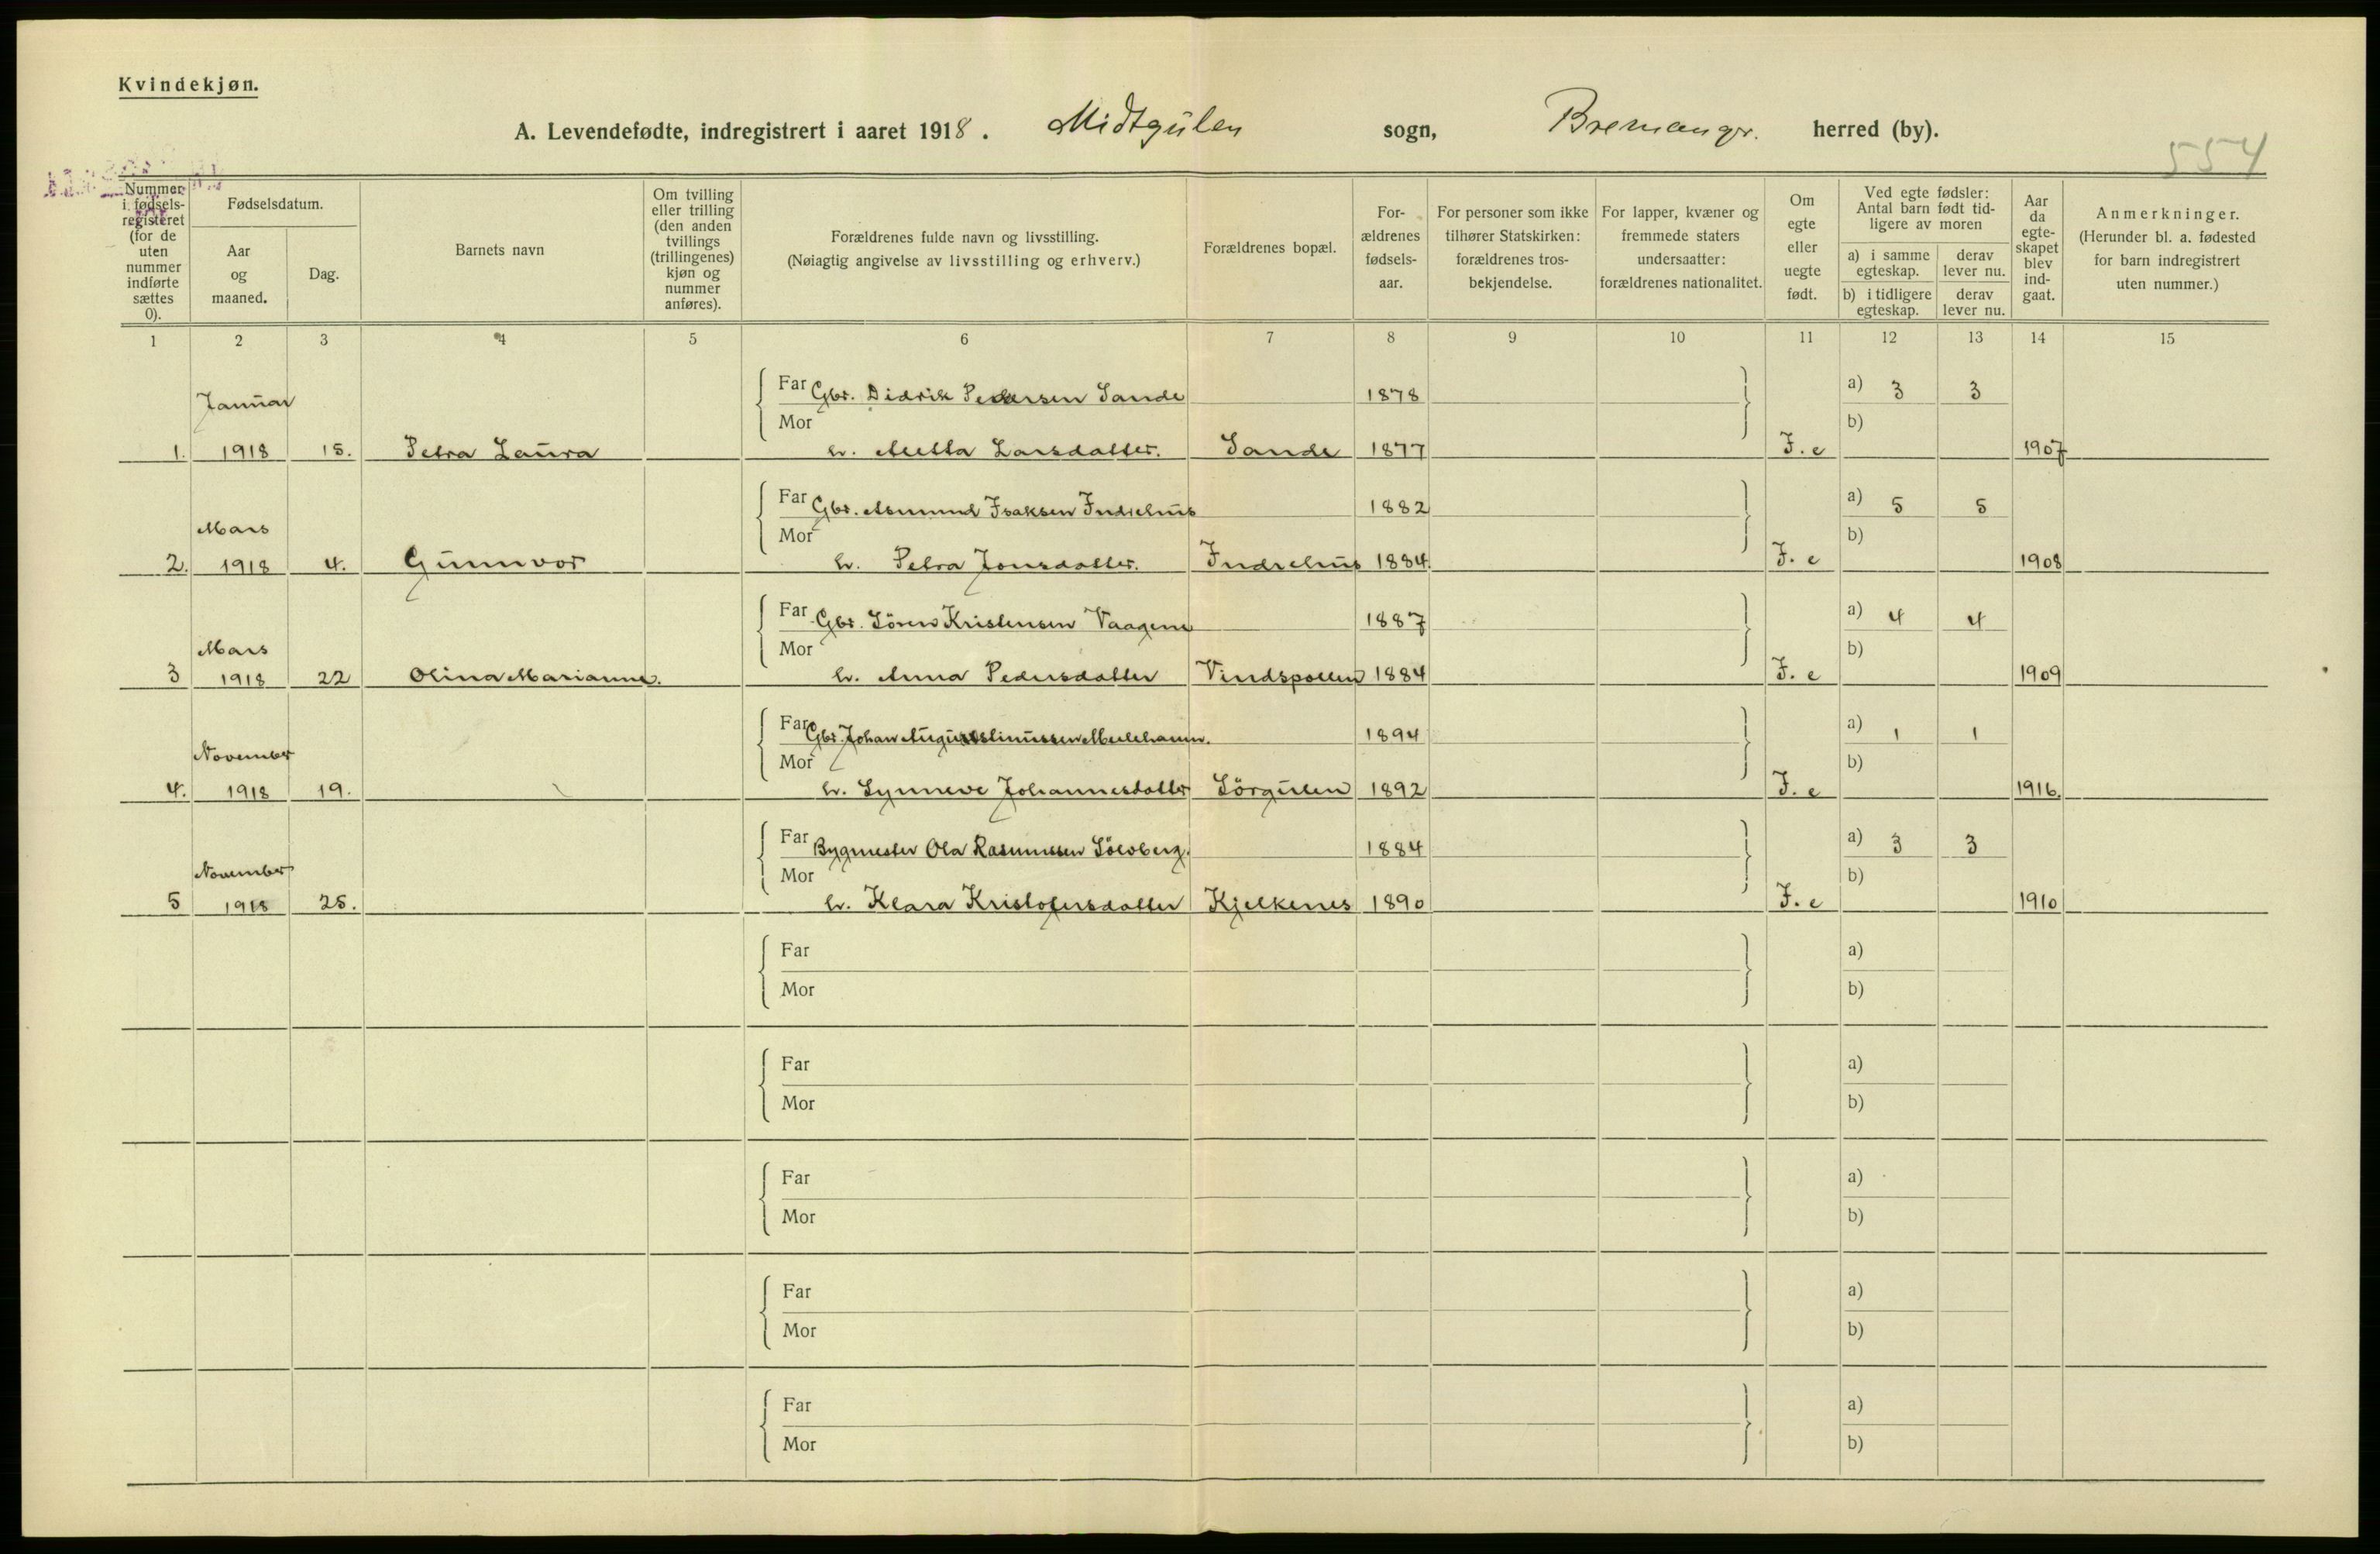 Kvindekjøn.
A. Levendefødte, indregistrert i aaret 1918. Midtgülen sogn, Bremanger. herred (by).
554
Nummer i fødsels-registeret (for de uten nummer indførte sættes 0).
Fødselsdatum.
Aar og maaned.
Dag.
Barnets navn
Om tvilling eller trilling (den anden tvillings (trillingenes) kjøn og nummer anføres).
Forældrenes fulde navn og livsstilling.
(Nøiagtig angivelse av livsstilling og erhverv.)
Forældrenes bopæl.
For-ældrenes fødsels-aar.
For personer som ikke tilhører Statskirken: forældrenes tros-bekjendelse.
For lapper, kvæner og fremmede staters undersaatter: forældrenes nationalitet.
Om egte eller uegte født.
Ved egte fødsler: Antal barn født tid-ligere av moren
a) i samme egteskap.
derav lever nu.
b) i tidligere egteskap.
derav lever nu.
Aar da egte-skapet blev ind-gaat.
Anmerkninger.
(Herunder bl. a. fødested for barn indregistrert uten nummer.)
1 2 3 4 5 6 7 8 9 10 11 12 13 14 15
Januar Far Gbr. Didrik Pedersen Sande 1878 a) 3 3
Mor b)
1. 1918 15. Petra Laüra h. Metta Larsdatter. Sande 1877 F. e 1907
Mars Far Gbr. Asmund Isaksen Indrehüs 1882 a) 5 5
Mor b)
2. 1918 4. Günnvor h. Petra Jonsdatter. Indrehüs 1884. F. e 1908
Mars Far Gbr. Sören Kristensen Vaagene 1887 a) 4 4
Mor b)
3 1918 22 Olina Marianne. h. Anna Pedersdatter Vindspollen 1884 F. e 1909
November Far Gbr. Johan 1894 a) 1 1
Mor b)
4. 1918 19. h. Synneve Johannesdatter Sörgülen 1892 F. e 1916.
November Far Bygmester Ola Rasmussen Sölvberg. 1884 a) 3 3
Mor b)
5 1918 25. h. Klara Kristofersdatter Kjelkenes 1890 F. e 1910
Far a)
Mor b)
Far a)
Mor b)
Far a)
Mor b)
Far a)
Mor b)
Far a)
Mor b)